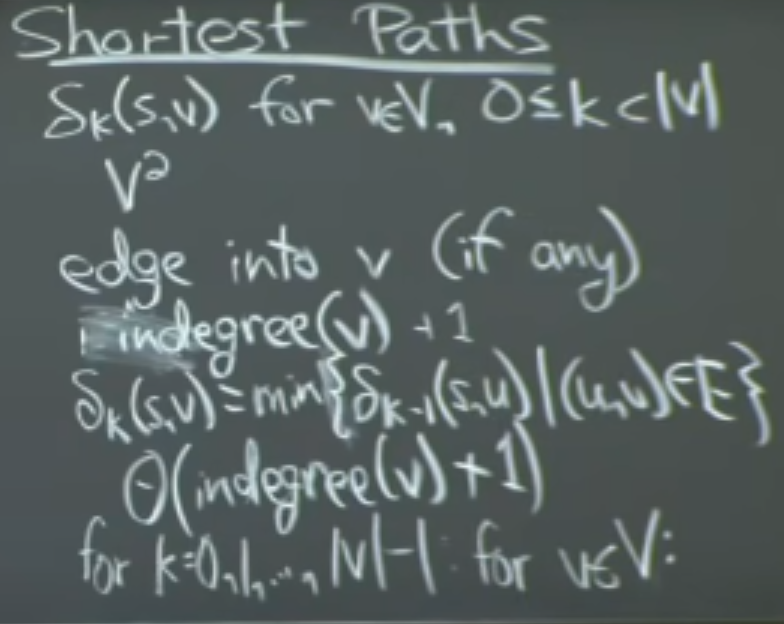 Shortest Paths
δₖ(s,v) for v∈V, 0≤k<|V|
V²
edge into v (if any)
indegree(v) +1
δₖ(s,v)=min{δₖ₋₁(s,u)|(u,v)∈E}
Θ(indegree(v)+1)
for k=0,1,..., |V|-1: for v∈V: